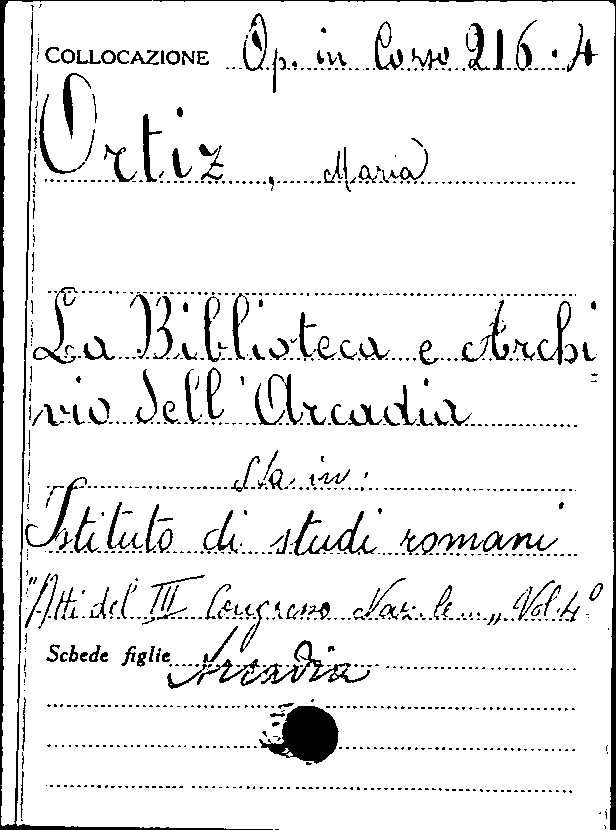 COLLOCAZIONE Op. in Corso 216.4
Ortiz, Maria
La Biblioteca e Archi=
vio dell'Arcadia
Sta in:
Istituto di studi romani
"Atti del III Congresso Naz.le...„ Vol. 4º
Schede figlie Arcadia